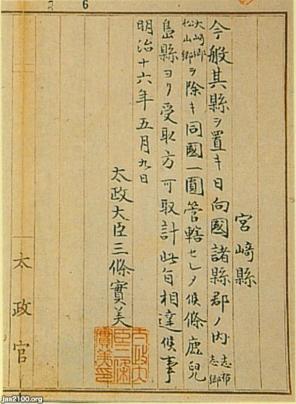 6
宮﨑縣
今般其縣ヲ置キ日向國諸縣郡ノ内志布志郷
大﨑郷松山郷ヲ除キ同國一圓管轄セシメ候條鹿兒
島縣ヨリ受取方可取計此旨相達候事
明治十六年五月九日
太政大臣三條實美
太政大臣三條實美印
太政官
jaa2100.org